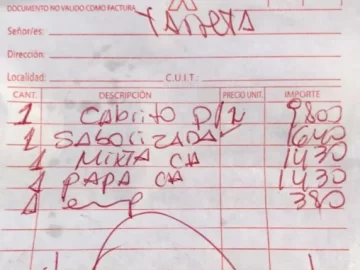 DOCUMENTO NO VALIDO COMO FACTURA
TARJETA
Señor/es:
Dirección:
Localidad: C.U.I.T.:
CANT. DESCRIPCIÓN PRECIO UNIT. IMPORTE
1 CABRITO P/2 9800
1 SABORIZADA 1640
1 MIXTA CA 1430
1 PAPA CA 1430
1 emp 380